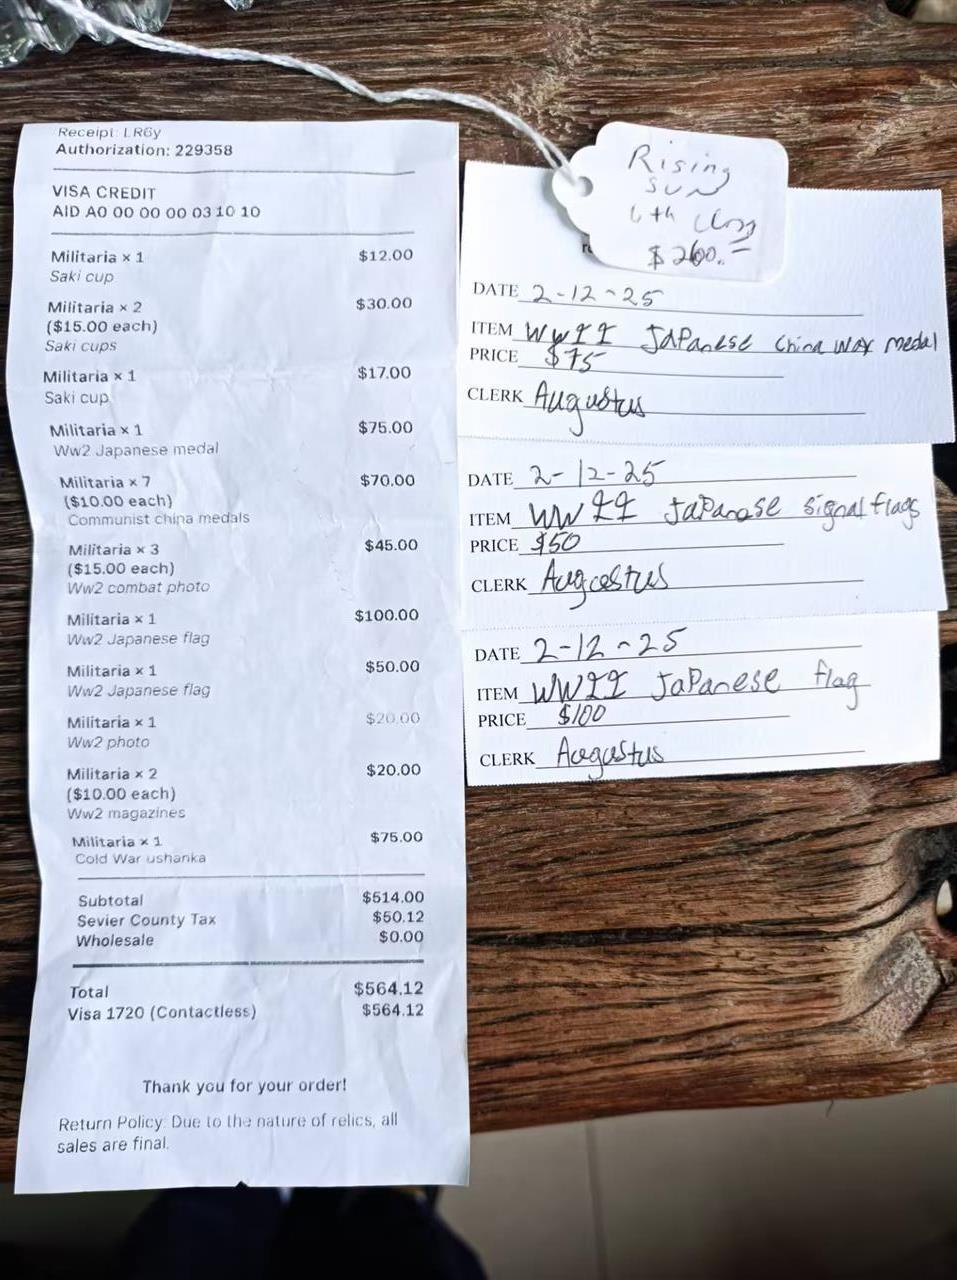 Receipt: LR6y
Authorization: 229358
VISA CREDIT
AID A0 00 00 00 03 10 10
Militaria × 1 $12.00
Saki cup
Militaria × 2 $30.00
($15.00 each)
Saki cups
Militaria × 1 $17.00
Saki cup
Militaria × 1 $75.00
Ww2 Japanese medal
Militaria × 7 $70.00
($10.00 each)
Communist china medals
Militaria × 3 $45.00
($15.00 each)
Ww2 combat photo
Militaria × 1 $100.00
Ww2 Japanese flag
Militaria × 1 $50.00
Ww2 Japanese flag
Militaria × 1 $20.00
Ww2 photo
Militaria × 2 $20.00
($10.00 each)
Ww2 magazines
Militaria × 1 $75.00
Cold War ushanka
Subtotal $514.00
Sevier County Tax $50.12
Wholesale $0.00
Total $564.12
Visa 1720 (Contactless) $564.12
Thank you for your order!
Return Policy: Due to the nature of relics, all
sales are final.
Rising
Sun
6th Class
$260.=
DATE 2-12-25
ITEM WWII Japanese China War medal
PRICE $75
CLERK Augustus
DATE 2-12-25
ITEM WWII Japanese signal flags
PRICE $50
CLERK Augustus
DATE 2-12-25
ITEM WWII Japanese flag
PRICE $100
CLERK Augustus